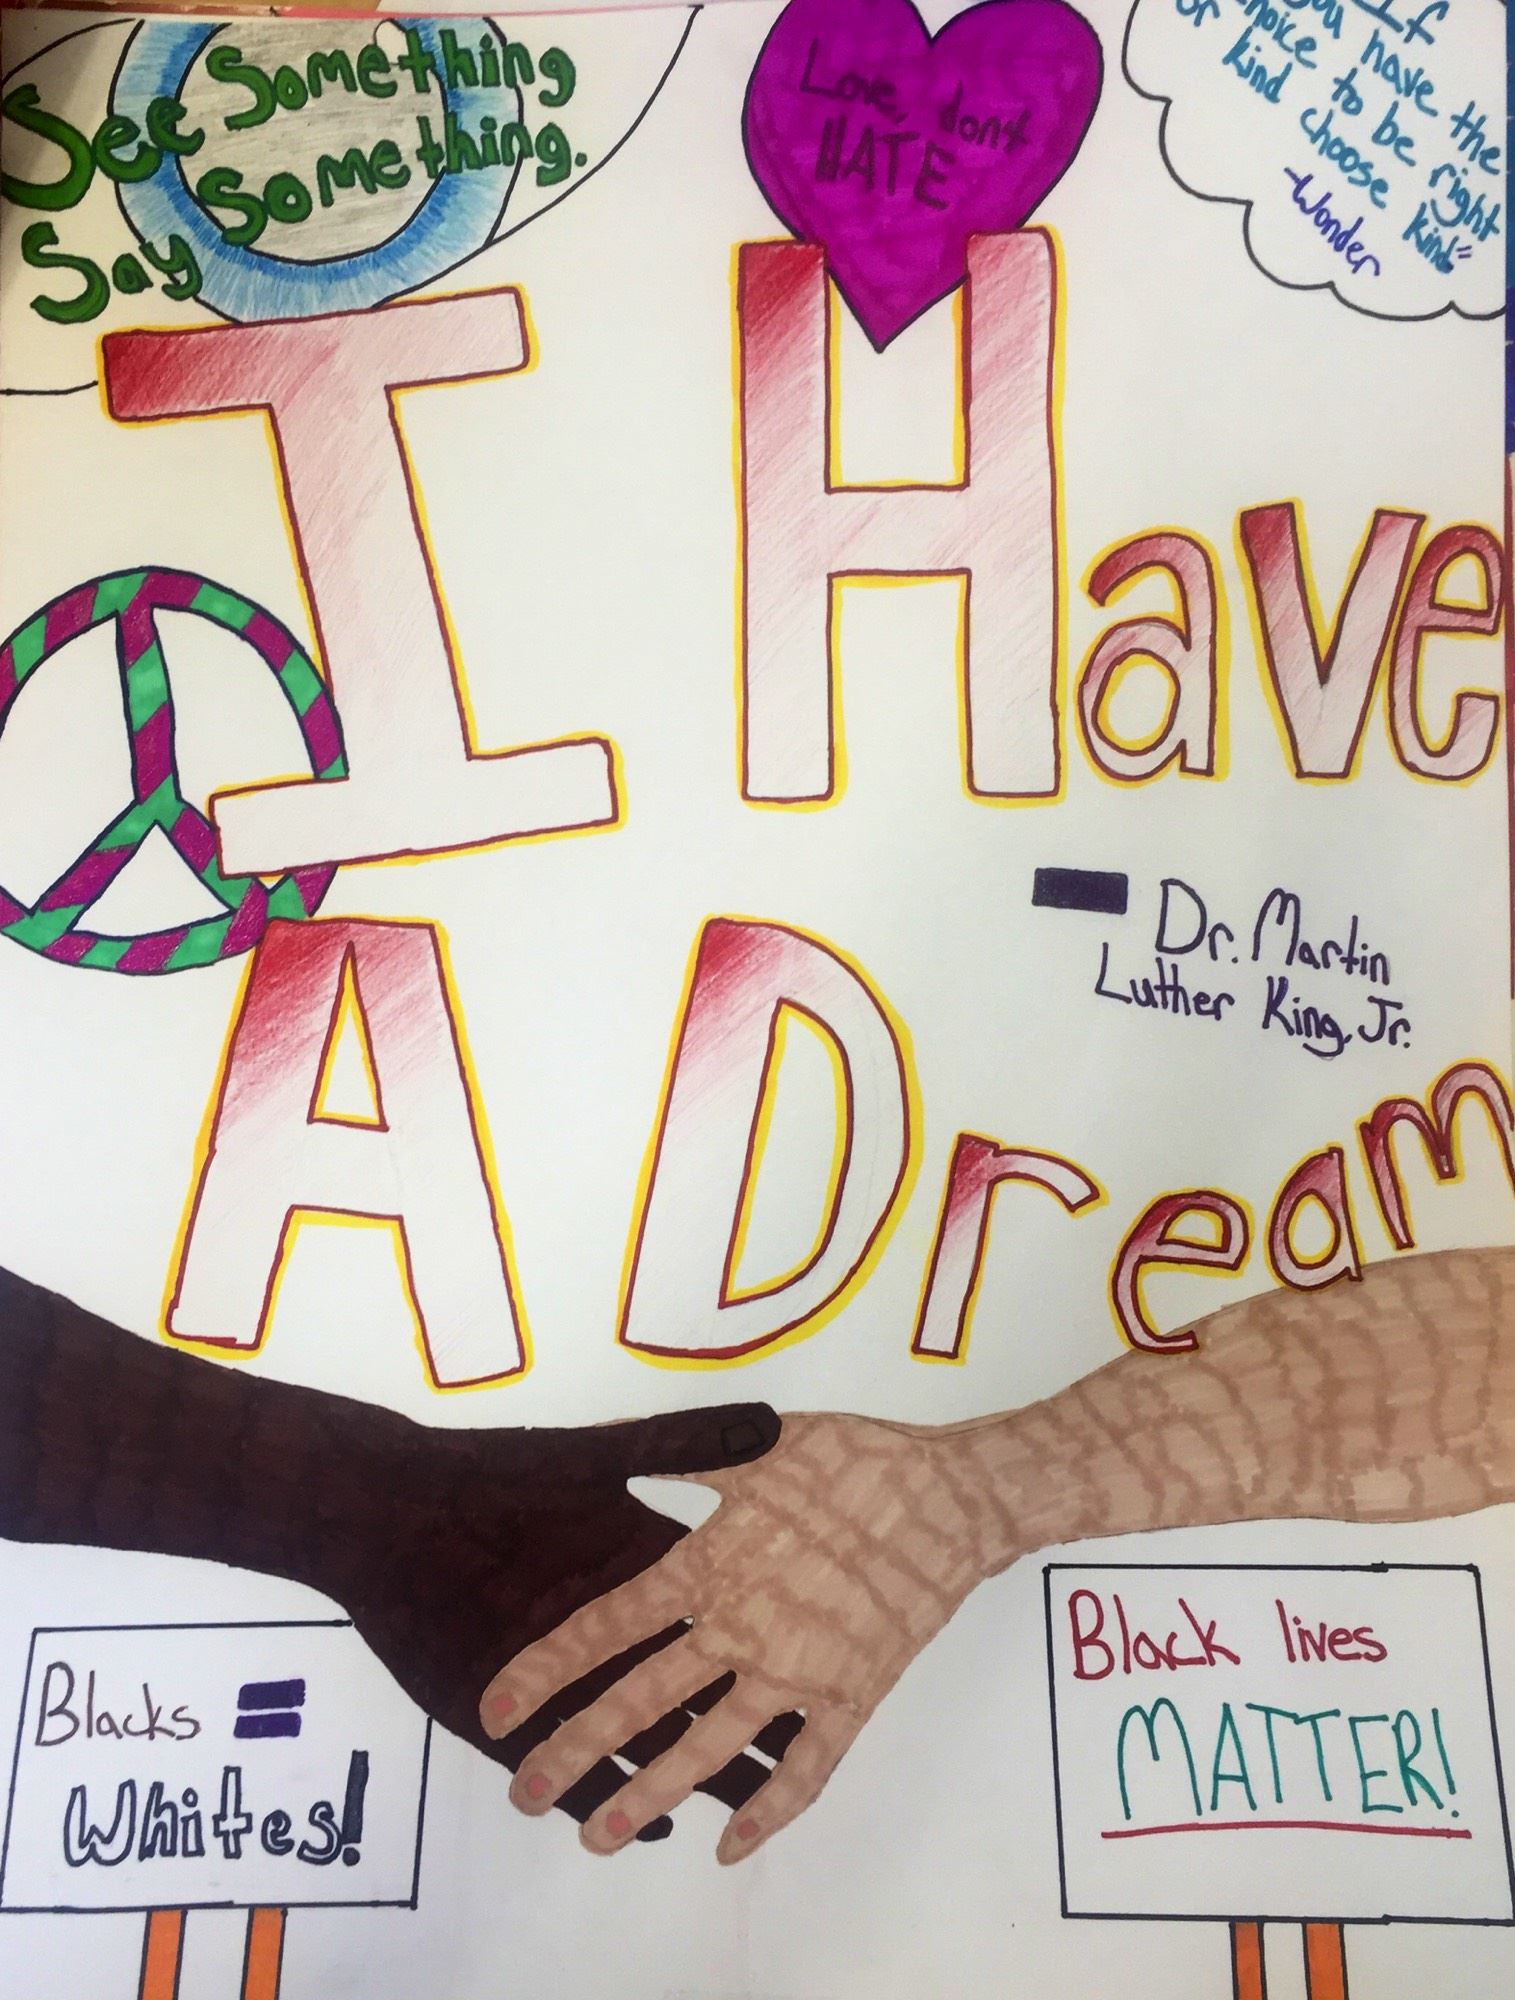 See Something
Say Something.
Love, dont
HATE
If
you have the
choice to be right
or kind choose kind"
-Wonder
I Have
- Dr. Martin
Luther King, Jr.
A Dream
Blacks =
Whites!
Black lives
MATTER!